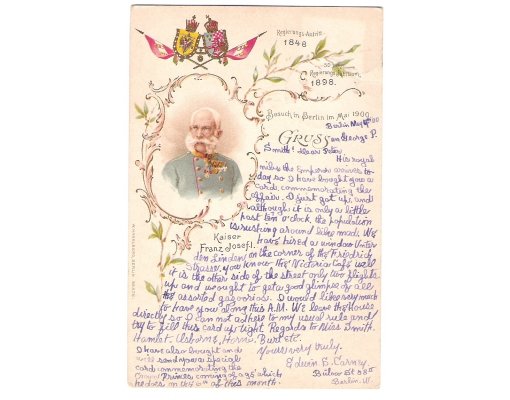 Regierungs-Antritt
1848
50
Regierungs-Jubiläum
1898.
Besuch in Berlin im Mai 1900
Berlin May 4th 00
GRUSS an George P.
Smith! Dear Peter
His royal
nibs the Emperor arrives to
day so I have bought you a
card commemorating the
affair. I just got up, and
although it is only a little
past ten o'clock the population
is rushing around like mad. We
have hired a window Unter
den Linden on the Friedrich
Strasse, you know the Victoria Café, well
it is the other side of the street only two flights
up and we ought to get a good glimpse of all
the assorted gazonride. I would like very much
to have you along this A.M. We leave the house
directly so I can not adhere to my usual rule and
try to fill this card up tight Regards to Miss Smith.
Hamlet, Osborne, Horni, Burt etc.
Kaiser
Franz Josef I.
Yours very truly.
Edwin E. Carney
Bülow St 58
Berlin. W.
I have also bought and
will send you a special
card commemorating the
Crown Princes coming of age which
he does on the 6th of this month.